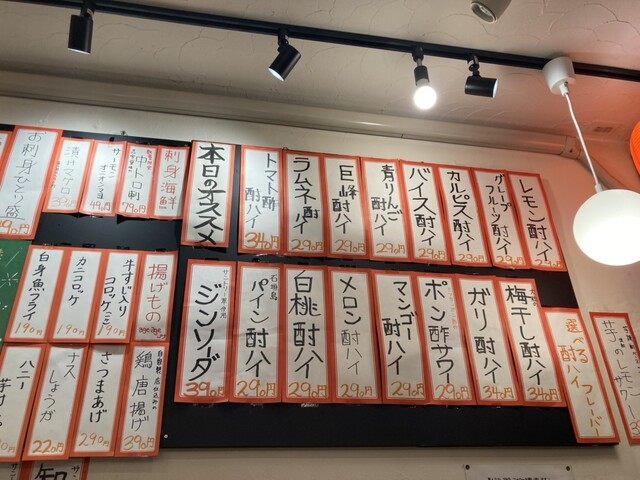 レモン酎ハイ
290円
グレープ
フルーツ酎ハイ
290円
カルピス酎ハイ
290円
バイス酎ハイ
290円
青りんご
酎ハイ
290円
巨峰酎ハイ
290円
ラムネ酎ハイ
290円
トマト酎ハイ
340円
本日のオススメ
刺身海鮮
中トロ刺
790円
サーモン
オニオン
490円
漬けマグロ
お刺身ひとり盛
選べる
酎ハイ
フレーバー
梅干し酎ハイ
340円
ガリ酎ハイ
340円
ポン酢サワー
290円
マンゴー
酎ハイ
290円
メロン酎ハイ
290円
白桃酎ハイ
290円
石垣島
パイン酎ハイ
290円
ジンソーダ
390円
揚げもの
牛すじ入り
コロッケ
190円
カニコロッケ
190円
白身魚フライ
190円
自家製
鶏唐揚げ
390円
さつまあげ
290円
ナス
しょうが
220円
ハニー